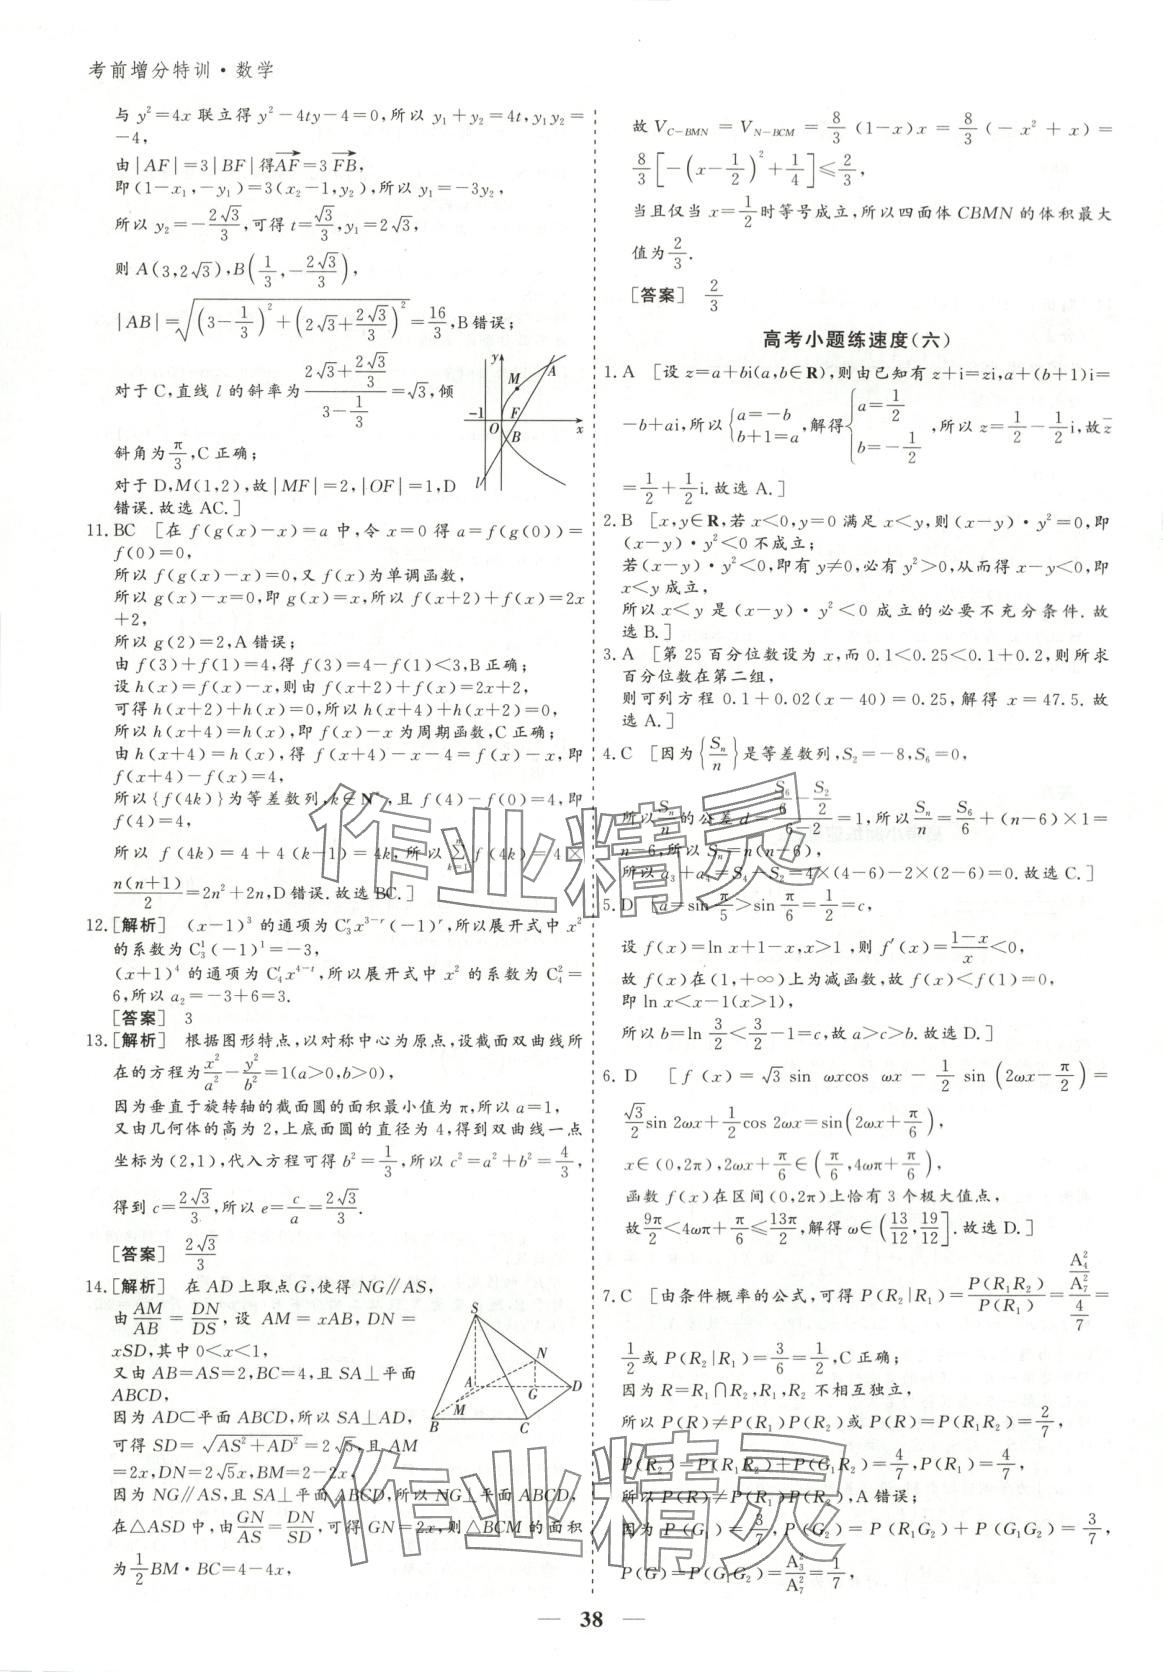 考前增分特训·数学
与 y²=4x 联立得 y²-4ty-4=0,所以 y₁+y₂=4t,y₁y₂=
-4,
由|AF|=3|BF|得AF→=3FB→,
即(1-x₁,-y₁)=3(x₂-1,y₂),所以 y₁=-3y₂,
所以 y₂=-2√3/3,可得 t=√3/3,y₁=2√3,
则 A(3,2√3),B(1/3,-2√3/3),
|AB|=√((3-1/3)²+(2√3+2√3/3)²)=16/3,B错误;
对于 C,直线 l 的斜率为(2√3+2√3/3)/(3-1/3)=√3,倾
斜角为π/3,C正确;
对于 D,M(1,2),故|MF|=2,|OF|=1,D
错误.故选 AC.]
y
M
A
-1
F
O
B
x
l
11. BC [在 f(g(x)-x)=a 中,令 x=0 得 a=f(g(0))=
f(0)=0,
所以 f(g(x)-x)=0,又 f(x)为单调函数,
所以 g(x)-x=0,即 g(x)=x,所以 f(x+2)+f(x)=2x
+2,
所以 g(2)=2,A错误;
由 f(3)+f(1)=4,得 f(3)=4-f(1)<3,B正确;
设 h(x)=f(x)-x,则由 f(x+2)+f(x)=2x+2,
可得 h(x+2)+h(x)=0,所以 h(x+4)+h(x+2)=0,
所以 h(x+4)=h(x),即 f(x)-x 为周期函数,C正确;
由 h(x+4)=h(x),得 f(x+4)-x-4=f(x)-x,即
f(x+4)-f(x)=4,
所以{f(4k)}为等差数列,k∈N*,且 f(4)-f(0)=4,即
f(4)=4,
所以 f(4k)=4+4(k-1)=4k,所以 ∑ⁿₖ₌₁ f(4k)=4×
n(n+1)/2=2n²+2n,D错误.故选 BC.]
12. [解析] (x-1)³ 的通项为 C₃ʳx³⁻ʳ(-1)ʳ,所以展开式中 x²
的系数为 C₃¹(-1)¹=-3,
(x+1)⁴ 的通项为 C₄ᵗx⁴⁻ᵗ,所以展开式中 x² 的系数为 C₄²=
6,所以 a₂=-3+6=3.
[答案] 3
13. [解析] 根据图形特点,以对称中心为原点,设截面双曲线所
在的方程为x²/a²-y²/b²=1(a>0,b>0),
因为垂直于旋转轴的截面圆的面积最小值为π,所以 a=1,
又由几何体的高为 2,上底面圆的直径为 4,得到双曲线一点
坐标为(2,1),代入方程可得 b²=1/3,所以 c²=a²+b²=4/3,
得到 c=2√3/3,所以 e=c/a=2√3/3.
[答案] 2√3/3
14. [解析] 在 AD 上取点 G,使得 NG∥AS,
由AM/AB=DN/DS,设 AM=xAB,DN=
xSD,其中 0<x<1,
又由 AB=AS=2,BC=4,且 SA⊥平面
ABCD,
因为 AD⊂平面 ABCD,所以 SA⊥AD,
可得 SD=√(AS²+AD²)=2√5,且 AM
=2x,DN=2√5x,BM=2-2x,
因为 NG∥AS,且 SA⊥平面 ABCD,所以 NG⊥平面 ABCD,
在△ASD 中,由GN/AS=DN/SD,可得 GN=2x,则△BCM 的面积
为1/2BM·BC=4-4x,
S
N
A
G
D
M
B
C
故 V_C-BMN=V_N-BCM=8/3(1-x)x=8/3(-x²+x)=
8/3[-(x-1/2)²+1/4]≤2/3,
当且仅当 x=1/2时等号成立,所以四面体 CBMN 的体积最大
值为2/3.
[答案] 2/3
高考小题练速度(六)
1. A [设 z=a+bi(a,b∈R),则由已知有 z+i=zi,a+(b+1)i=
-b+ai,所以{a=-b b+1=a,解得{a=1/2 b=-1/2,所以 z=1/2-1/2i,故z̄
=1/2+1/2i.故选 A.]
2. B [x,y∈R,若 x<0,y=0 满足 x<y,则(x-y)·y²=0,即
(x-y)·y²<0 不成立;
若(x-y)·y²<0,即有 y≠0,必有 y²>0,从而得 x-y<0,即
x<y 成立,
所以 x<y 是(x-y)·y²<0 成立的必要不充分条件.故
选 B.]
3. A [第 25 百分位数设为 x,而 0.1<0.25<0.1+0.2,则所求
百分位数在第二组,
则可列方程 0.1+0.02(x-40)=0.25,解得 x=47.5.故
选 A.]
4. C [因为{Sₙ/n}是等差数列,S₂=-8,S₆=0,
所以Sₙ/n的公差 d=(S₆/6-S₂/2)/(6-2)=1,所以Sₙ/n=S₆/6+(n-6)×1=
n-6,所以 Sₙ=n(n-6),
所以 a₃+a₄=S₄-S₂=4×(4-6)-2×(2-6)=0.]
5. D [a=sin π/5>sin π/6=1/2=c,
设 f(x)=ln x+1-x,x>1,则 f′(x)=(1-x)/x<0,
故 f(x)在(1,+∞)上为减函数,故 f(x)<f(1)=0,
即 ln x<x-1(x>1),
所以 b=ln 3/2<3/2-1=c,故 a>c>b.故选 D.]
6. D [f(x)=√3sin ωxcos ωx-1/2sin(2ωx-π/2)=
√3/2sin 2ωx+1/2cos 2ωx=sin(2ωx+π/6),
x∈(0,2π),2ωx+π/6∈(π/6,4ωπ+π/6),
函数 f(x)在区间(0,2π)上恰有 3 个极大值点,
故9π/2<4ωπ+π/6≤13π/2,解得 ω∈(13/12,19/12].故选 D.]
7. C [由条件概率的公式,可得 P(R₂|R₁)=P(R₁R₂)/P(R₁)=(A₄²/A₇²)/(4/7)=
1/2或 P(R₂|R₁)=3/6=1/2,C正确;
因为 R=R₁∩R₂,R₁,R₂ 不相互独立,
所以 P(R)≠P(R₁)P(R₂)或 P(R)=P(R₁R₂)=2/7,
P(R₂)=P(R₁R₂)+P(G₁R₂)=4/7,P(R₁)=4/7,
所以 P(R)≠P(R₁)P(R₂),A错误;
因为 P(G₁)=3/7,P(G₂)=P(R₁G₂)+P(G₁G₂)=3/7,
P(G)=P(G₁G₂)=A₃²/A₇²=1/7,
作业精灵
作业精灵
— 38 —